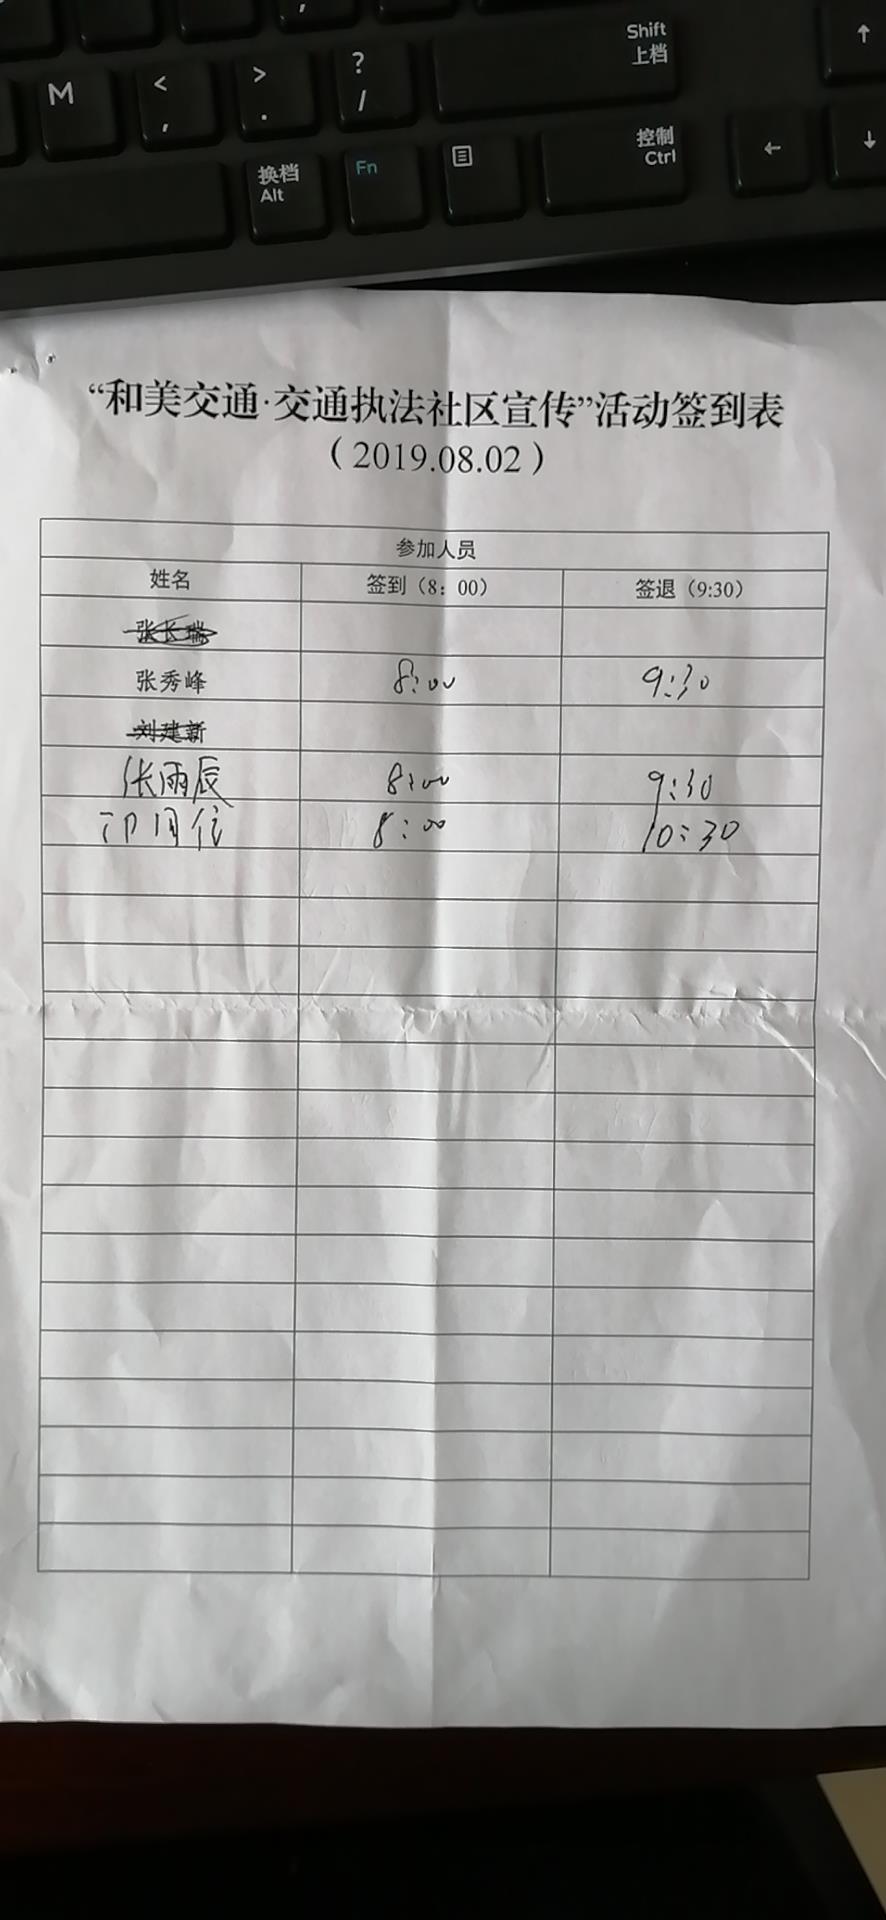 Shift
上档
M
<
,
>
.
?
/
↑
换档
Alt
Fn
控制
Ctrl
←
↓
“和美交通·交通执法社区宣传”活动签到表
（2019.08.02）
参加人员
姓名 签到（8：00） 签退（9:30）
张长瑞
张秀峰 8:00 9:30
刘建新
张雨辰 8:00 9:30
8:00 10:30